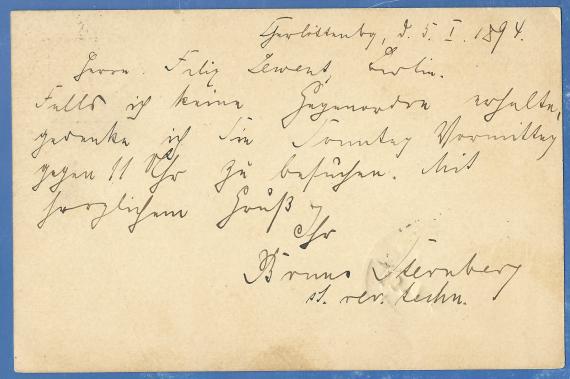 Charlottenbg, d. 5. I. 1894.
Herrn Felix Lewent, Berlin.
Falls ich keine Gegenordre erhalte,
gedenke ich Sie Sonntag Vormittag
gegen 11 Uhr zu besuchen. Mit
herzlichem Gruß
Ihr
Bruno Sternberg
st. rer. techn.